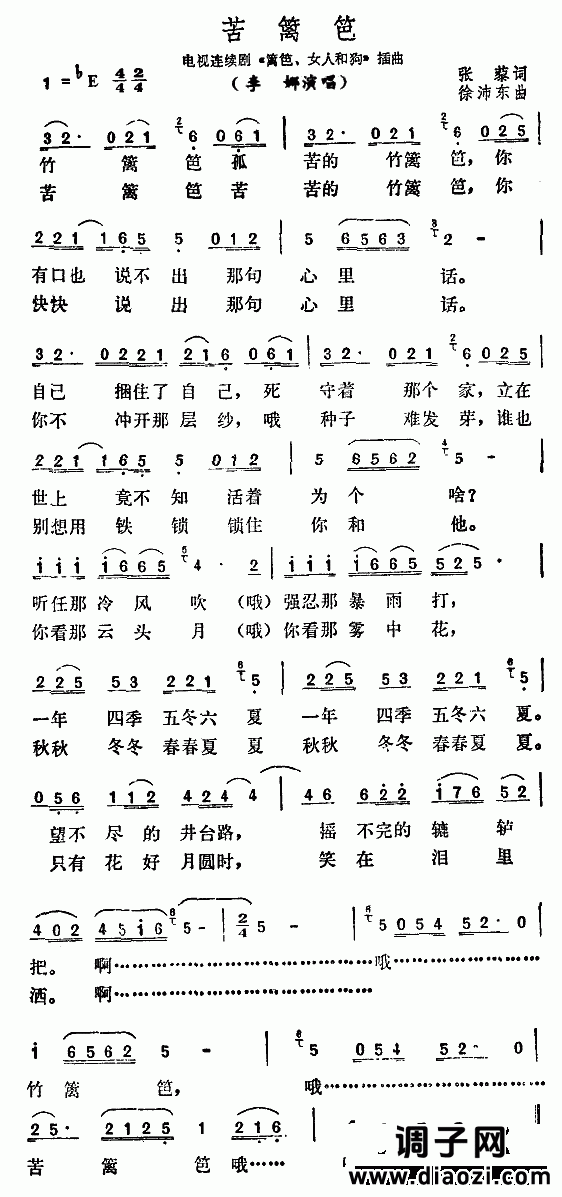 苦篱笆
电视连续剧《篱笆、女人和狗》插曲
1=♭E 4/4 2/4
(李娜演唱)
张藜词
徐沛东曲
3 2· 0 2 1 6 0 6 1 | 3 2· 0 2 1 6 0 2 5
竹 篱 笆 孤 苦的 竹篱 笆,你
苦 篱 笆 苦 苦的 竹篱 笆,你
2 2 1 1 6 5 5 0 1 2 | 5 6 5 6 3 2 -
有口也 说不 出 那句 心 里 话。
快快 说 出 那句 心 里 话。
3 2· 0 2 2 1 2 1 6 0 6 1 | 3 2· 0 2 1 6 0 2 5
自己 捆住了 自 己,死 守着 那个 家,立在
你不 冲开那 层 纱,哦 种子 难发 芽,谁也
2 2 1 1 6 5 5 0 1 2 | 5 6 5 6 2 5 -
世上 竟不 知 活着 为 个 啥?
别想用 铁 锁 锁住 你 和 他。
i i i i 6 6 5 4· 2 | i i i i 6 6 5 5 2 5·
听任那 冷 风 吹 (哦) 强忍那 暴 雨 打,
你看那 云 头 月 (哦) 你看那 雾 中 花,
2 2 5 5 3 2 2 1 5 | 2 2 5 5 3 2 2 1 5
一年 四季 五冬六 夏 一年 四季 五冬六 夏。
秋秋 冬冬 春春夏 夏 秋秋 冬冬 春春夏 夏。
0 5 6 1 1 2 4 2 4 4 | 4 6 6 2 2 i 7 6 5 2
望不 尽的 井台路, 摇 不完的 辘 轳
只有 花好 月圆时, 笑在 泪 里
4 0 2 4 5 i 6 5 - | 2/4 5 - | 5 0 5 4 5 2· 0
把。 啊………………………………哦………………
洒。 啊………………
i 6 5 6 2 5 - | 5 0 5 4 5 2· 0
竹 篱 笆, 哦………………
2 5· 2 1 2 5 1 2 1 6 5
苦 篱 笆 哦……
调子网
www.diaozi.com